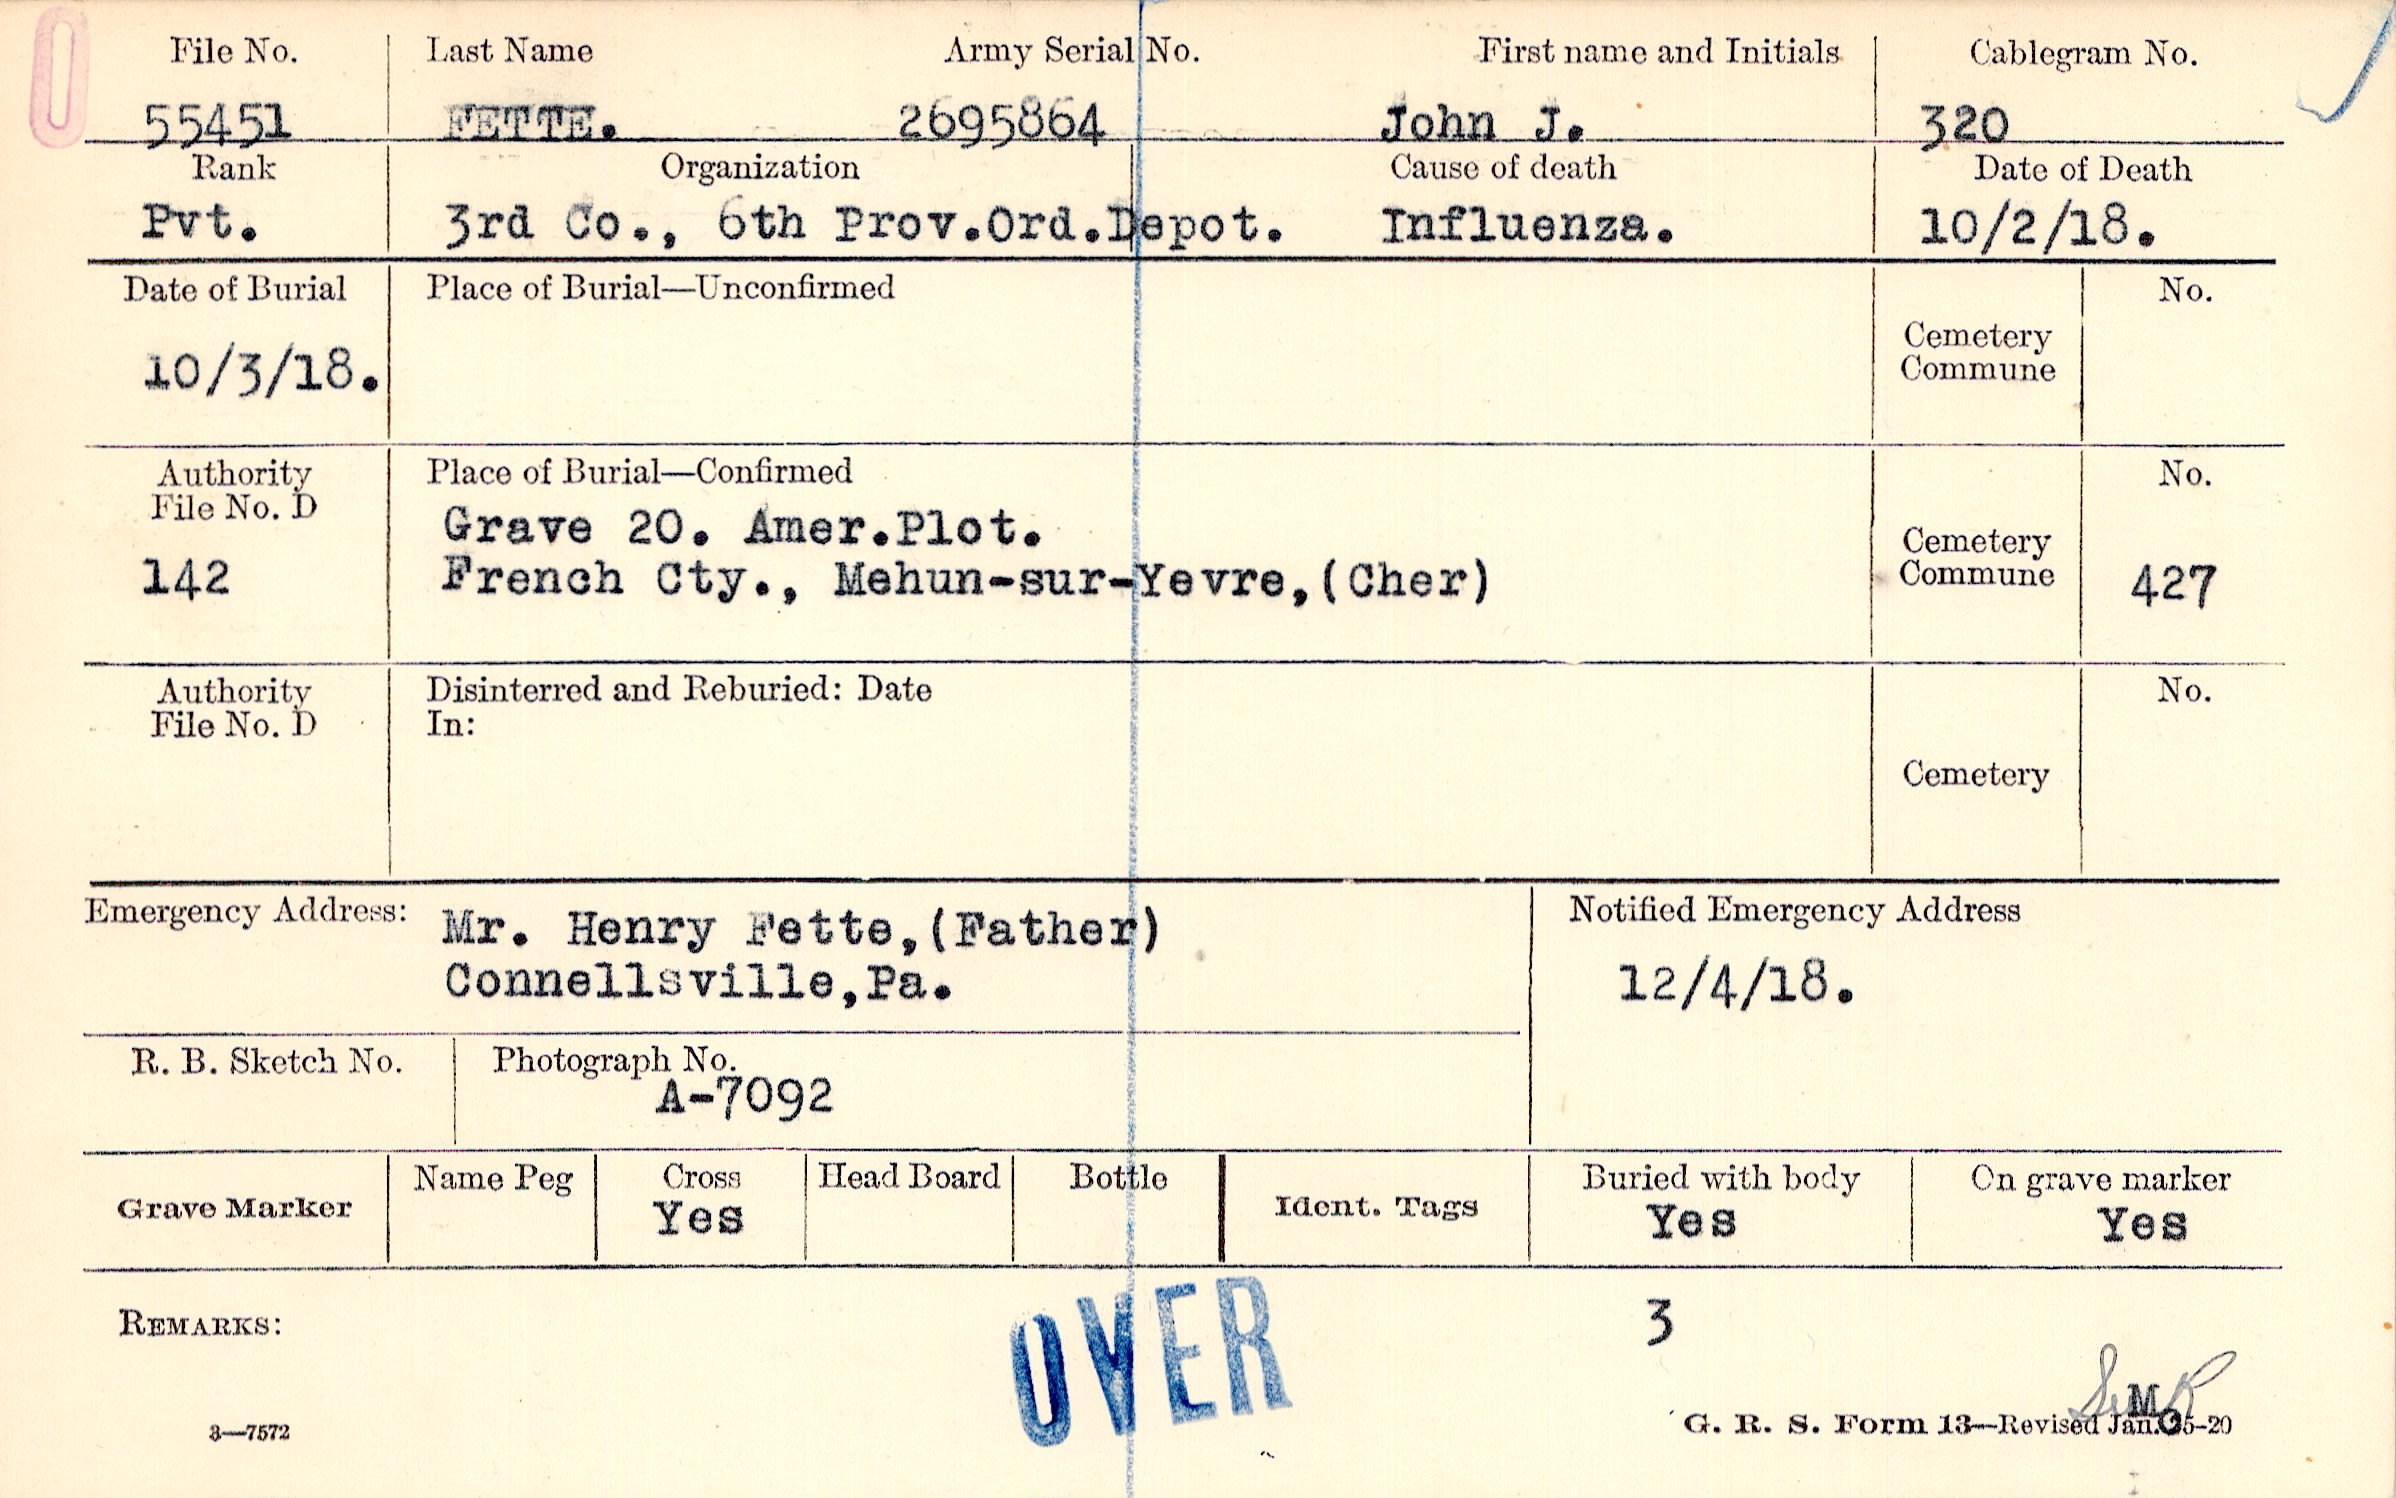 File No. Last Name Army Serial No. First name and Initials Cablegram No.
55451 FETTE. 2695864 John J. 320
Rank Organization Cause of death Date of Death
Pvt. 3rd Co., 6th Prov.Ord.Depot. Influenza. 10/2/18.
Date of Burial Place of Burial—Unconfirmed No.
Cemetery
Commune
10/3/18.
Authority Place of Burial—Confirmed No.
File No. D
Grave 20. Amer.Plot.
Cemetery
Commune
142 French Cty., Mehun-sur-Yevre,(Cher) 427
Authority Disinterred and Reburied: Date No.
File No. D In:
Cemetery
Emergency Address: Mr. Henry Fette,(Father) Notified Emergency Address
Connellsville,Pa. 12/4/18.
R. B. Sketch No. Photograph No.
A-7092
Grave Marker Name Peg Cross Head Board Bottle Ident. Tags Buried with body On grave marker
Yes Yes Yes
REMARKS: OVER 3
M
3—7572 G. R. S. Form 13—Revised Jan. 5-20